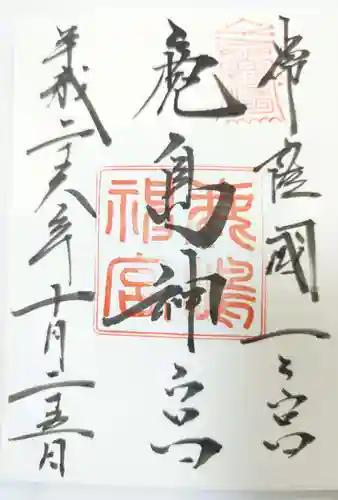 常陸國一之宮
鹿島神宮
平成二十八年十月二十五日
鹿嶋
神宮